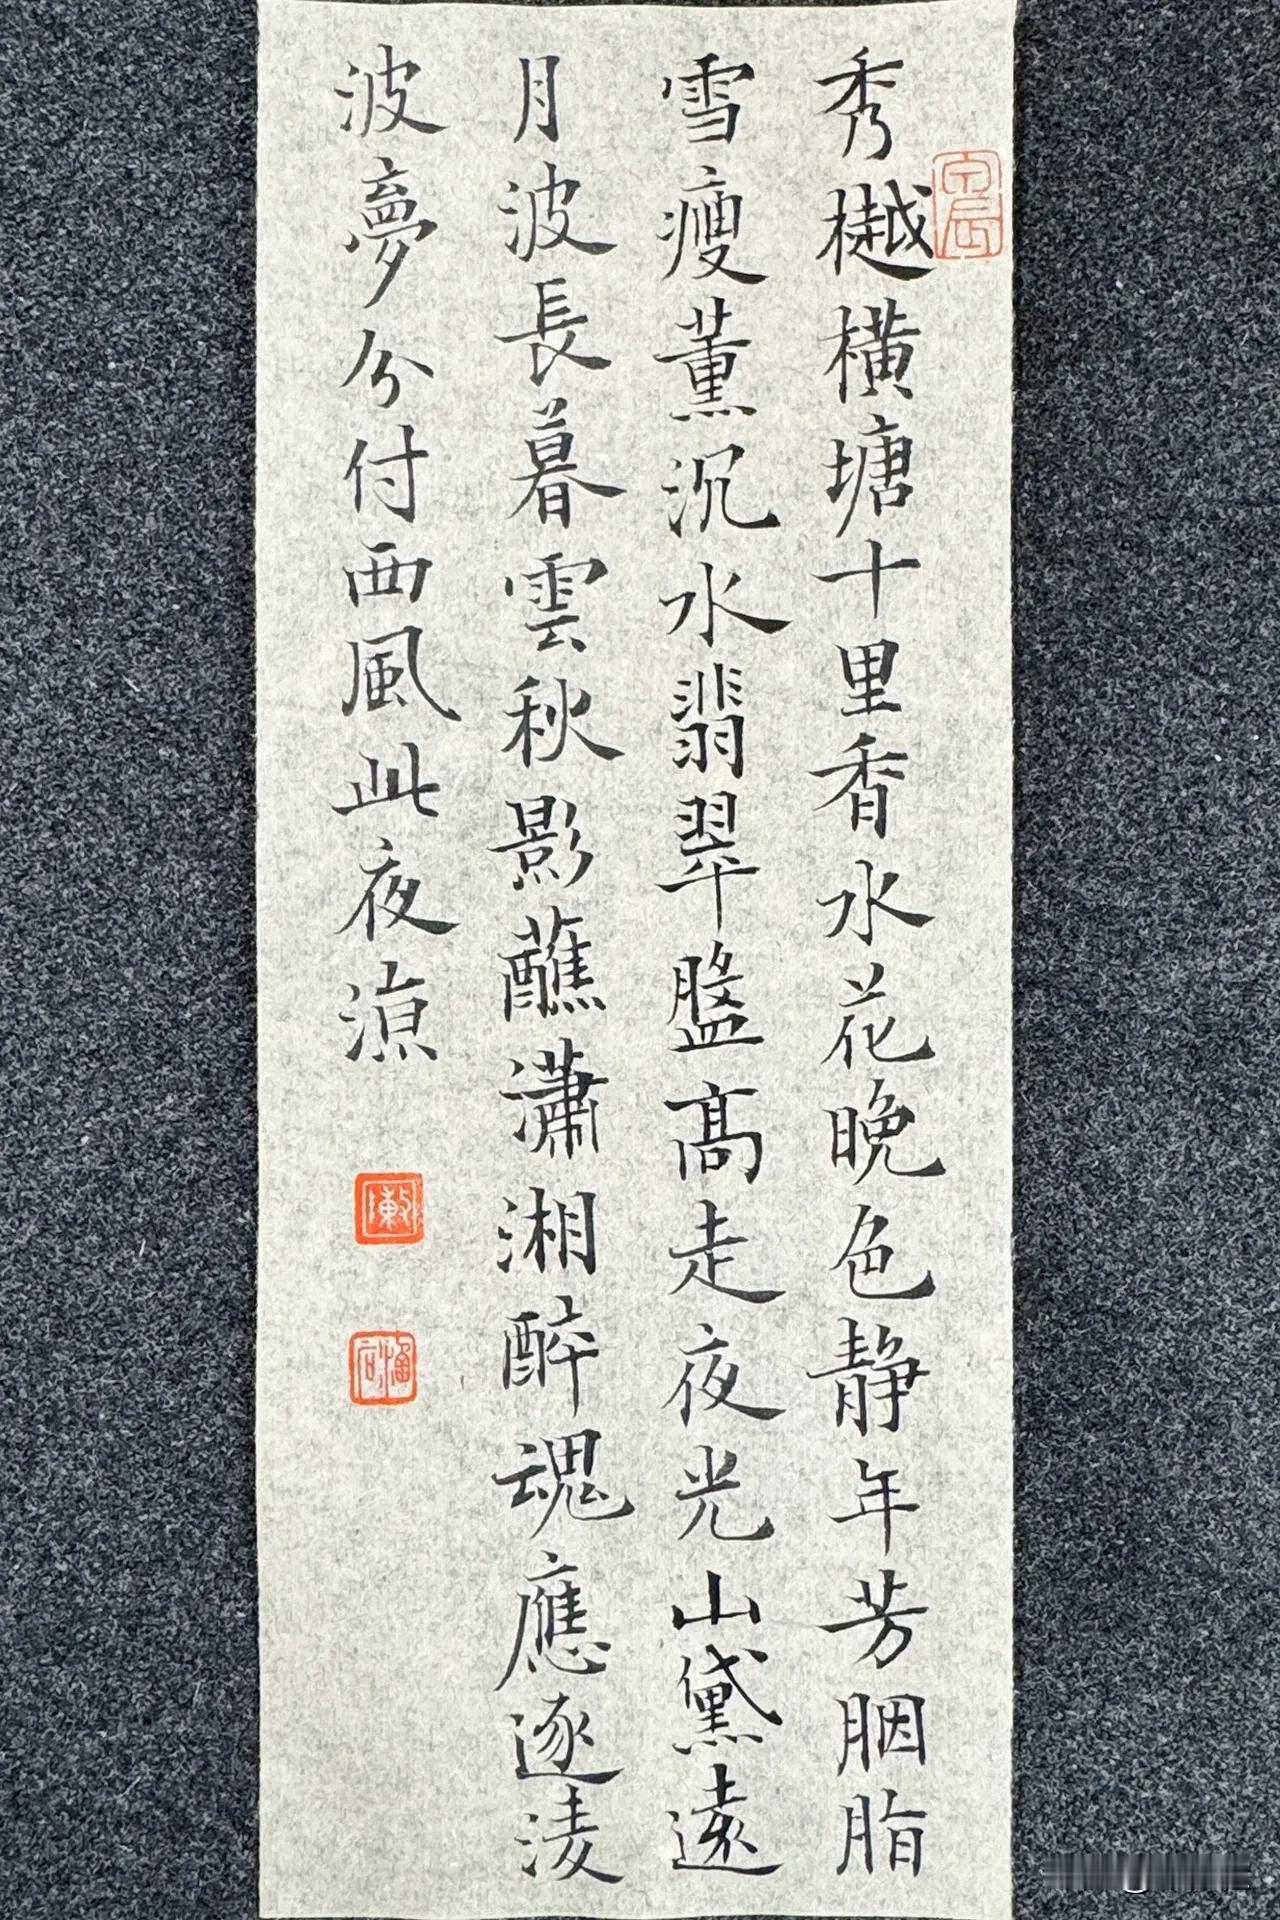 秀樾橫塘十里香水花晚色静年芳胭脂
雪瘦薰沉水翡翠盤高走夜光山黛遠
月波長暮雲秋影蘸瀟湘醉魂應逐淩
波夢分付西風此夜涼